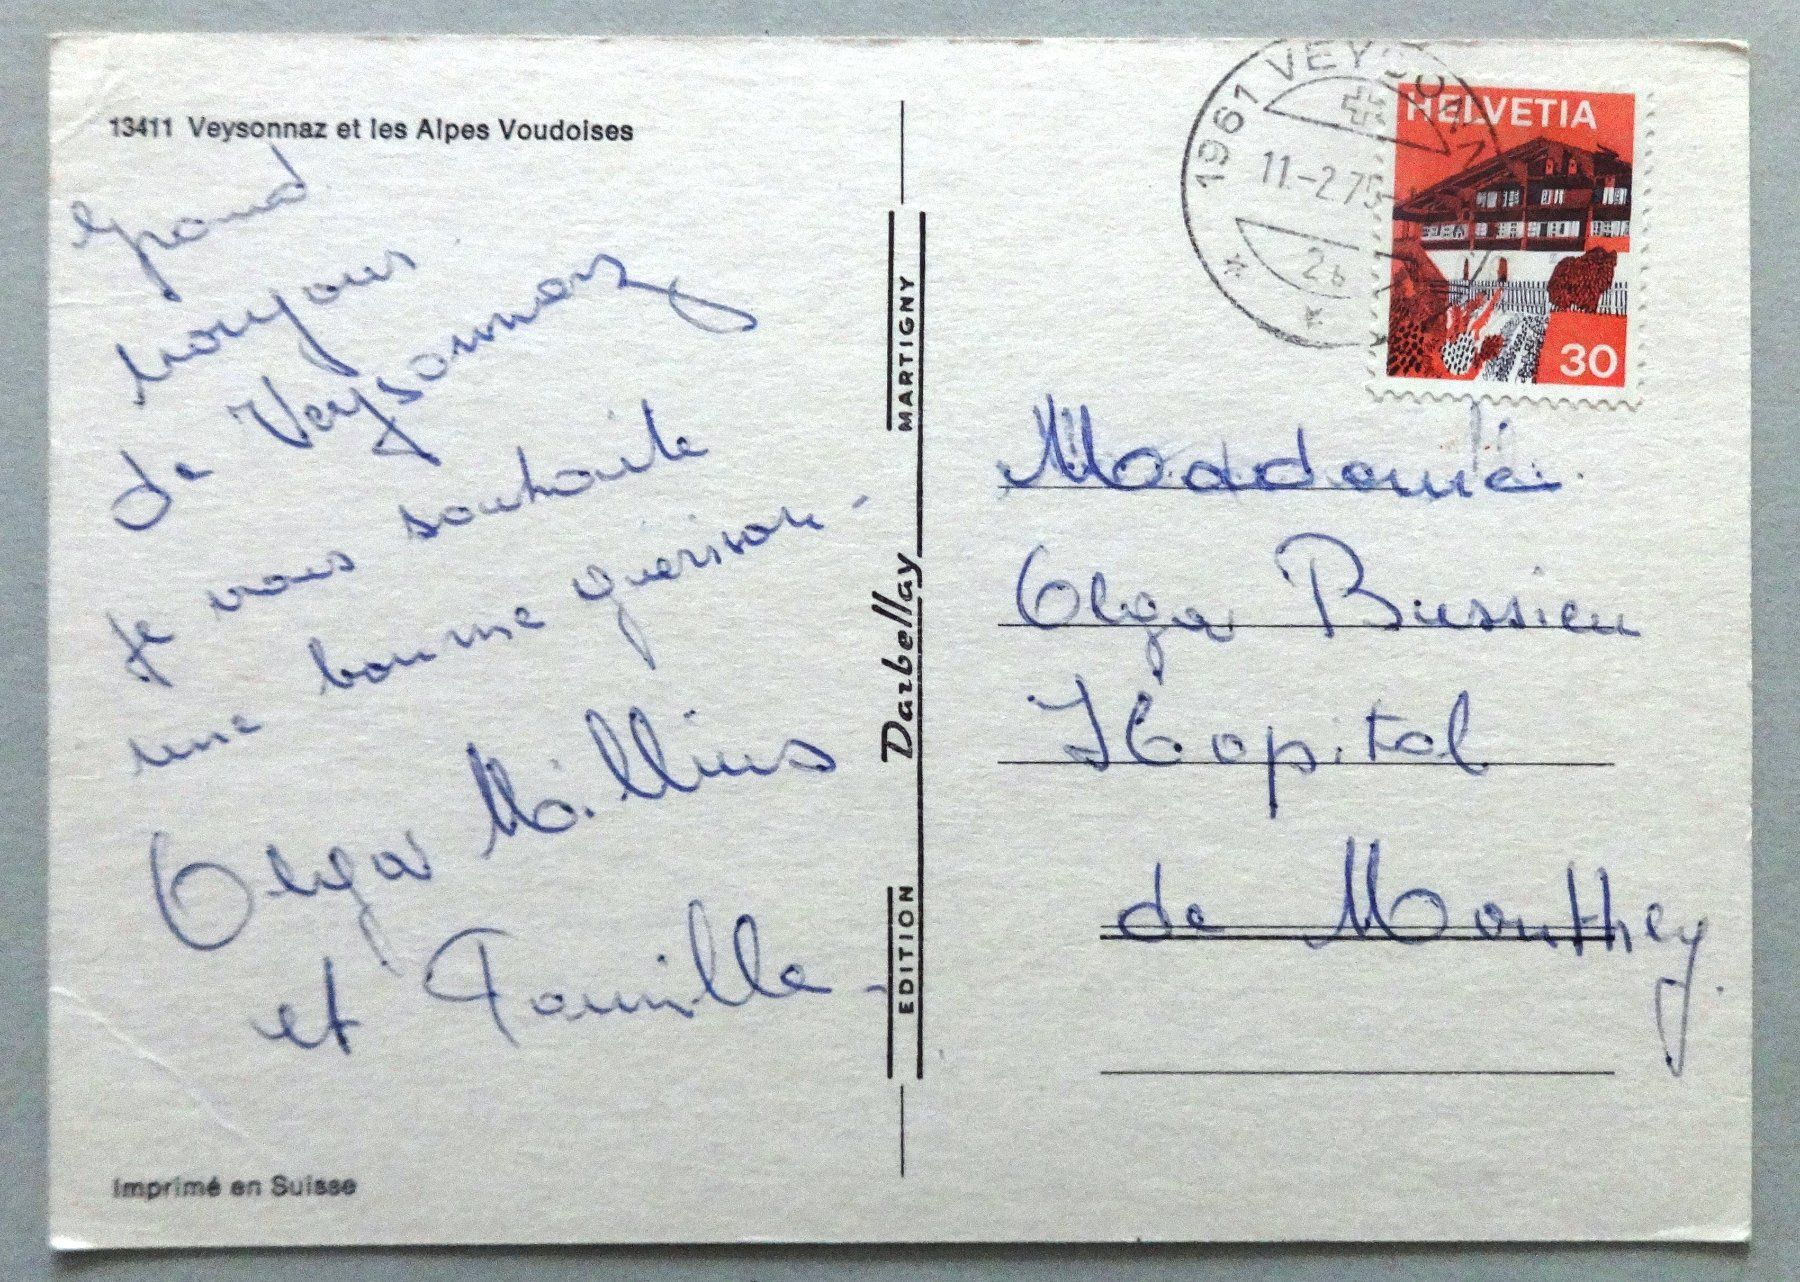 13411 Veysonnaz et les Alpes Voudoises
Grand
bonjour
de Veysonnaz
Je vous souhaite
une bonne guérison -
Olga
et Famille -
Imprimé en Suisse
EDITION Darbellay MARTIGNY
1961 VEYSONNAZ
11.-2.75
HELVETIA
30
Maddame
Olga Bussien
Hopital
de Monthey.